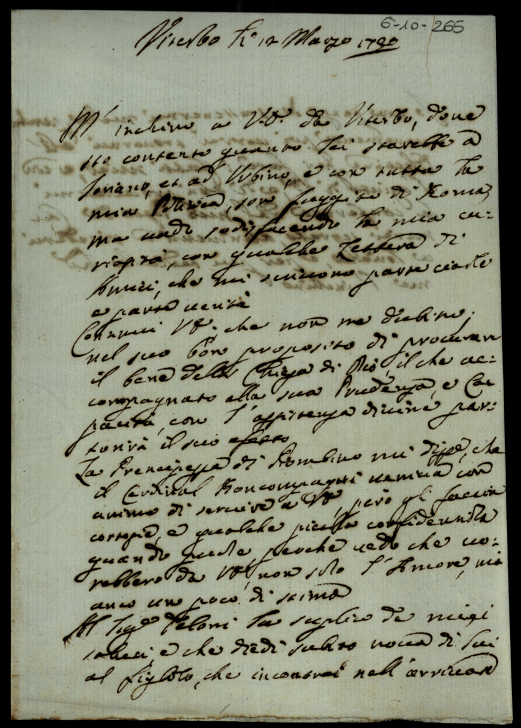 6-10-265
Viterbo li 12 Marzo 1720
M' inchino a V.E. da Viterbo, dove
sto contento quanto lei starebbe a
Soriano, et ad Urbino, e con tutta la
mia son fuggito di Roma,
ma vado sodisfacendo la mia cu-
riosità, con qualche lettera di
Amici, che mi scrivono parte ciarle
e parte verità
V.E. che non me dubito,
nel suo bon proposito di procurare
il bene della Chiesa di Dio, il che ac-
compagnato alla sua Prudenza, e Ca-
pacità, con l' assistenza divina par-
torirà il suo effetto
La Prencipessa di Piombino mi disse, che
il Cardinal Boncompagni veniva con
animo di servire a V.E. però gli faccia
cortesie, e qualche piccola confidenza
quando puole perche vedo che vo-
rebbero da V.E. non solo l' Amore, ma
anco un poco di stima
Al Sig.r Feloni la suplico de miei
saluti e che diedi subito nova di lui
al figliolo, che incontrai nell' arrivare